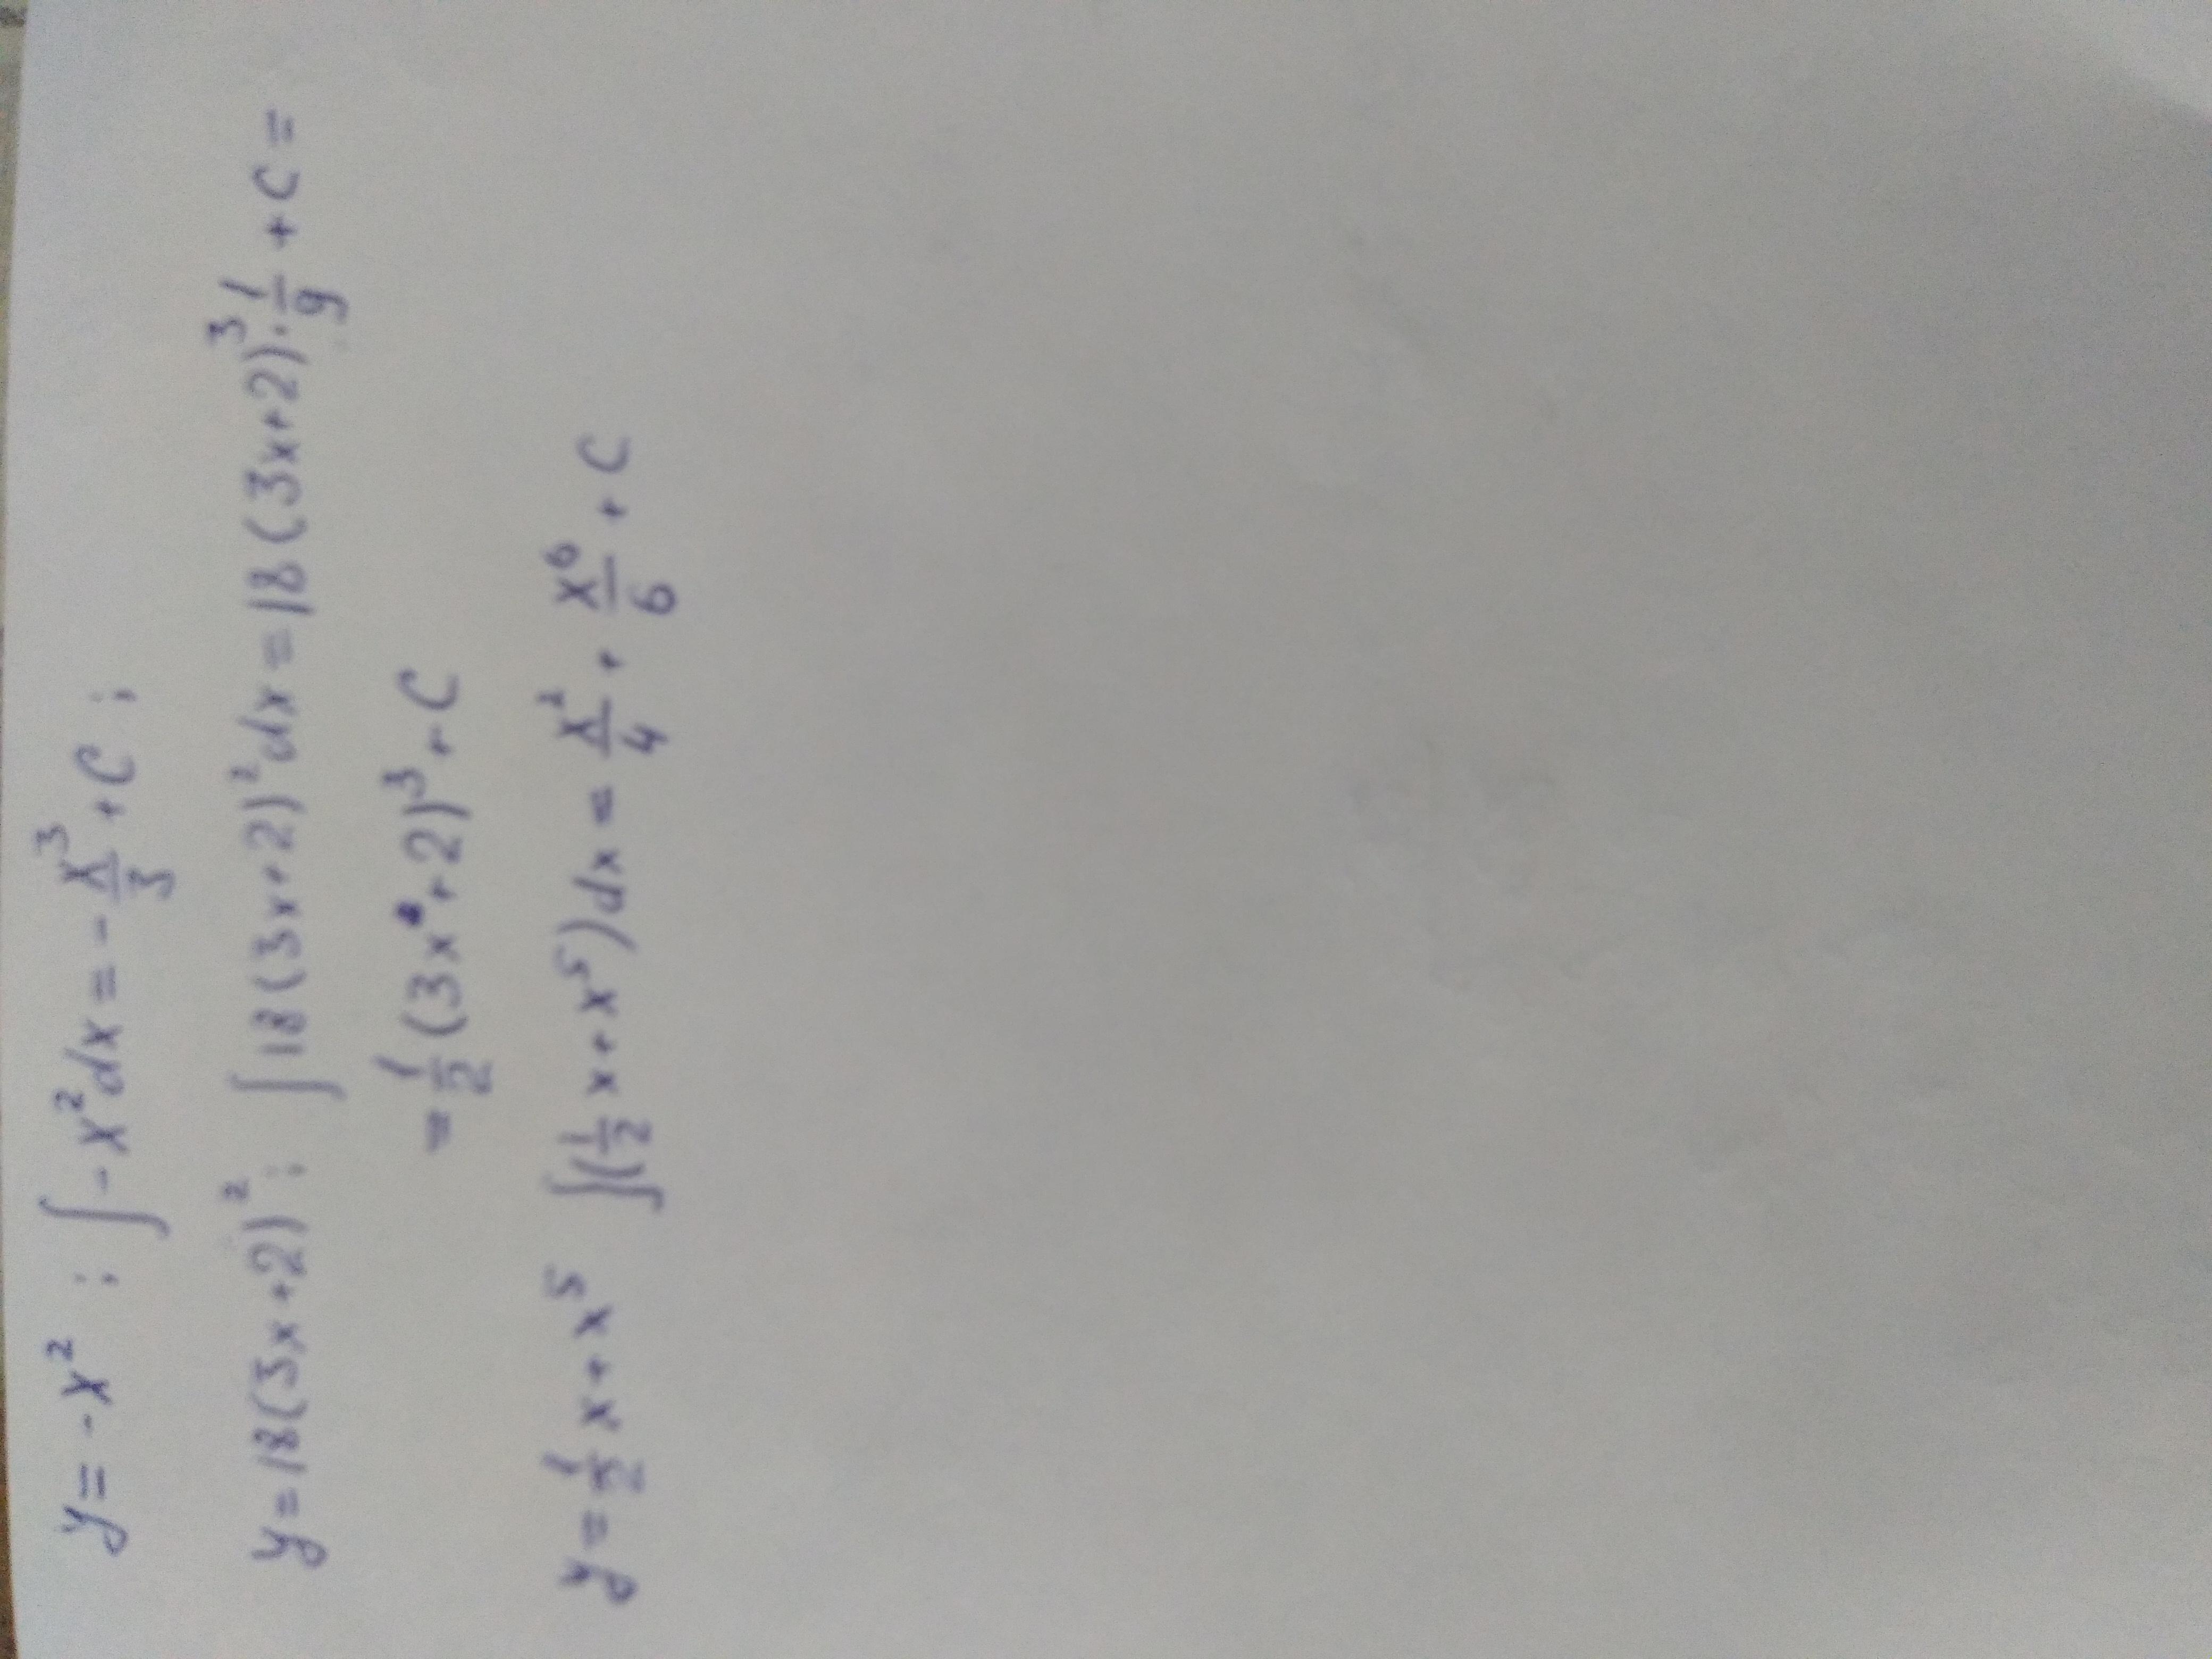 y = -x² ; ∫-x²dx = -x³/3 + C ;
y = 18(3x+2)² ; ∫18(3x+2)²dx = 18(3x+2)³·1/9 + C =
= 1/2(3x+2)³ + C
y = 1/2 x + x⁵ ∫(1/2 x + x⁵)dx = x²/4 + x⁶/6 + C